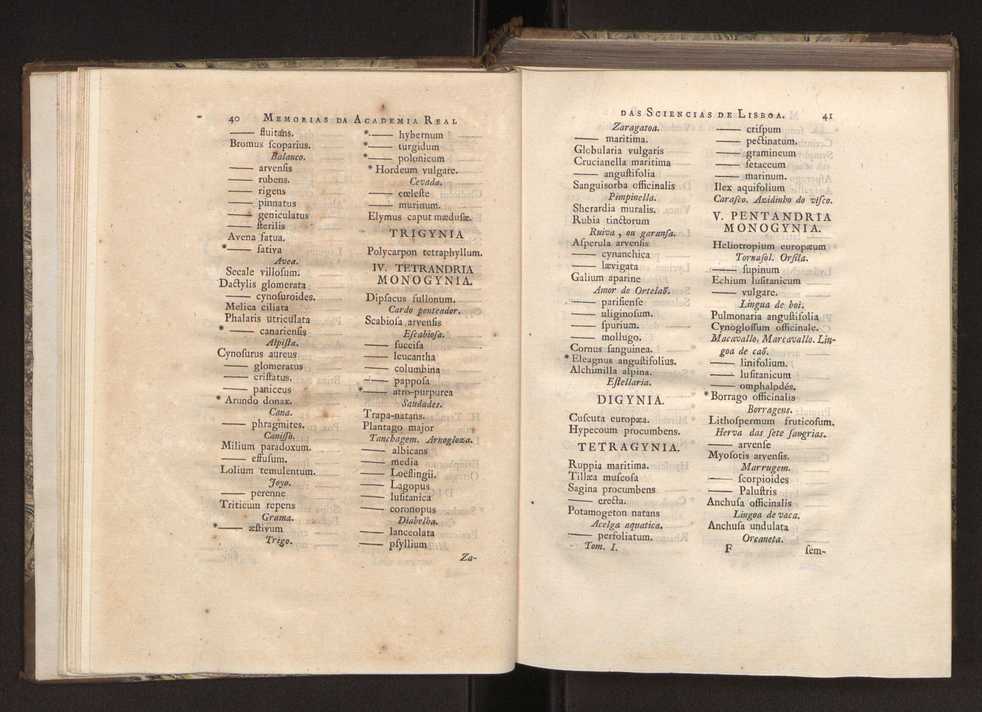 40 MEMORIAS DA ACADEMIA REAL
—— fluitans.
Bromus ſcoparius.
Balanco.
—— arvenſis
—— rubens.
—— rigens
—— pinnatus
—— geniculatus
—— ſterilis
Avena fatua.
*—— ſativa
Avea.
Secale villoſum.
Dactylis glomerata
—— cynoſuroides.
Melica ciliata
Phalaris utriculata
* —— canarienſis
Alpiſta.
Cynoſurus aureus
—— glomeratus
—— criſtatus.
—— paniceus
* Arundo donax.
Cana.
—— phragmites.
Caniſſo.
Milium paradoxum.
—— effuſum.
Lolium temulentum.
Joyo.
—— perenne
Triticum repens
Grama.
*—— æſtivum
Trigo.
*—— hybernum
*—— turgidum
*—— polonicum
* Hordeum vulgare.
Cevada.
—— cœleſte
—— murinum.
Elymus caput mæduſæ.
TRIGYNIA
Polycarpon tetraphyllum.
IV. TETRANDRIA
MONOGYNIA.
Dipſacus fullonum.
Cardo penteador.
Scabioſa arvenſis
Eſcabioſa.
—— ſucciſa
—— leucantha
—— columbina
—— pappoſa
*—— atro-purpurea
Saudades.
Trapa-natans.
Plantago major
Tanchagem. Arnogloxa.
—— albicans
—— media
—— Loeflingii.
—— Lagopus
—— luſitanica
—— coronopus
Diabelha.
—— lanceolata
—— pſyllium
Za-
DAS SCIENCIAS DE LISBOA. 41
Zaragatoa.
—— maritima.
Globularia vulgaris
Crucianella maritima
—— anguſtifolia
Sanguisorba officinalis
Pimpinella.
Sherardia muralis.
Rubia tinctorum
Ruiva, ou garanſa.
Aſperula arvenſis
—— cynanchica
—— lævigata
Galium aparine
Amor de Ortelaõ.
—— pariſienſe
—— uliginoſum.
—— ſpurium.
—— mollugo.
Cornus ſanguinea.
* Eleagnus anguſtifolius.
Alchimilla alpina.
Eſtellaria.
DIGYNIA.
Cuſcuta europæa.
Hypecoum procumbens.
TETRAGYNIA.
Ruppia maritima.
Tillæa muſcoſa
Sagina procumbens
—— erecta.
Potamogeton natans
Acelga aquatica.
—— perfoliatum.
Tom. I.
—— criſpum
—— pectinatum.
—— gramineum
—— ſetaceum
—— marinum.
Ilex aquifolium
Caraſco. Azidinho do viſco.
V. PENTANDRIA
MONOGYNIA.
Heliotropium europæum
Tornaſol. Orſila.
—— ſupinum
Echium luſitanicum
—— vulgare.
Lingua de boi.
Pulmonaria anguſtifolia
Cynogloſſum officinale.
Macavallo. Marcavallo. Lin-
goa de caõ.
—— linifolium.
—— luſitanicum
—— omphalodés.
* Borrago officinalis
Borragens.
Lithoſpermum fruticoſum.
Herva das ſete ſangrias.
—— arvenſe
Myoſotis arvenſis.
Marrugem.
—— ſcorpioides
—— Paluſtris
Anchuſa officinalis
Lingoa de vaca.
Anchuſa undulata
Orcaneta.
F ſem-